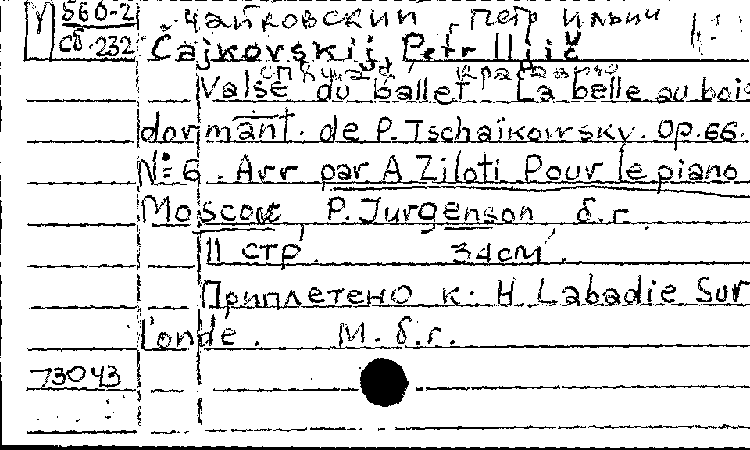 М 560-2 Чайковский, Петр Ильич
сб. 232 Čajkovskij, Petr Il'ič
"Спящая красавица
Valse du ballet "La belle au bois
dormant. de P. Tschaïkowsky. Op. 66.
№ 6. Arr par A Ziloti Pour le piano
Moscou P. Jurgenson, б.г.
11 стр. 34 см.
Приплетено к: H. Labadie Sur
l'onde. М. б.г.
73043